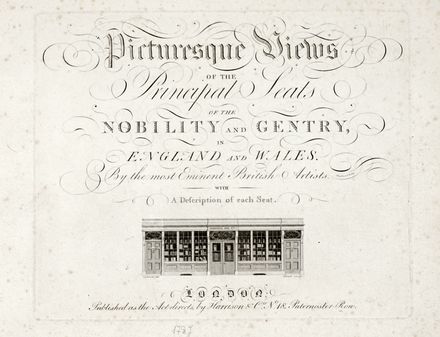 Picturesque Views
OF THE
Principal Seats
OF THE
NOBILITY AND GENTRY,
IN
ENGLAND AND WALES.
By the most Eminent British Artists.
WITH
A Description of each Seat.
LONDON:
Published as the Act directs, by Harrison & Co. No. 18, Paternoster Row.